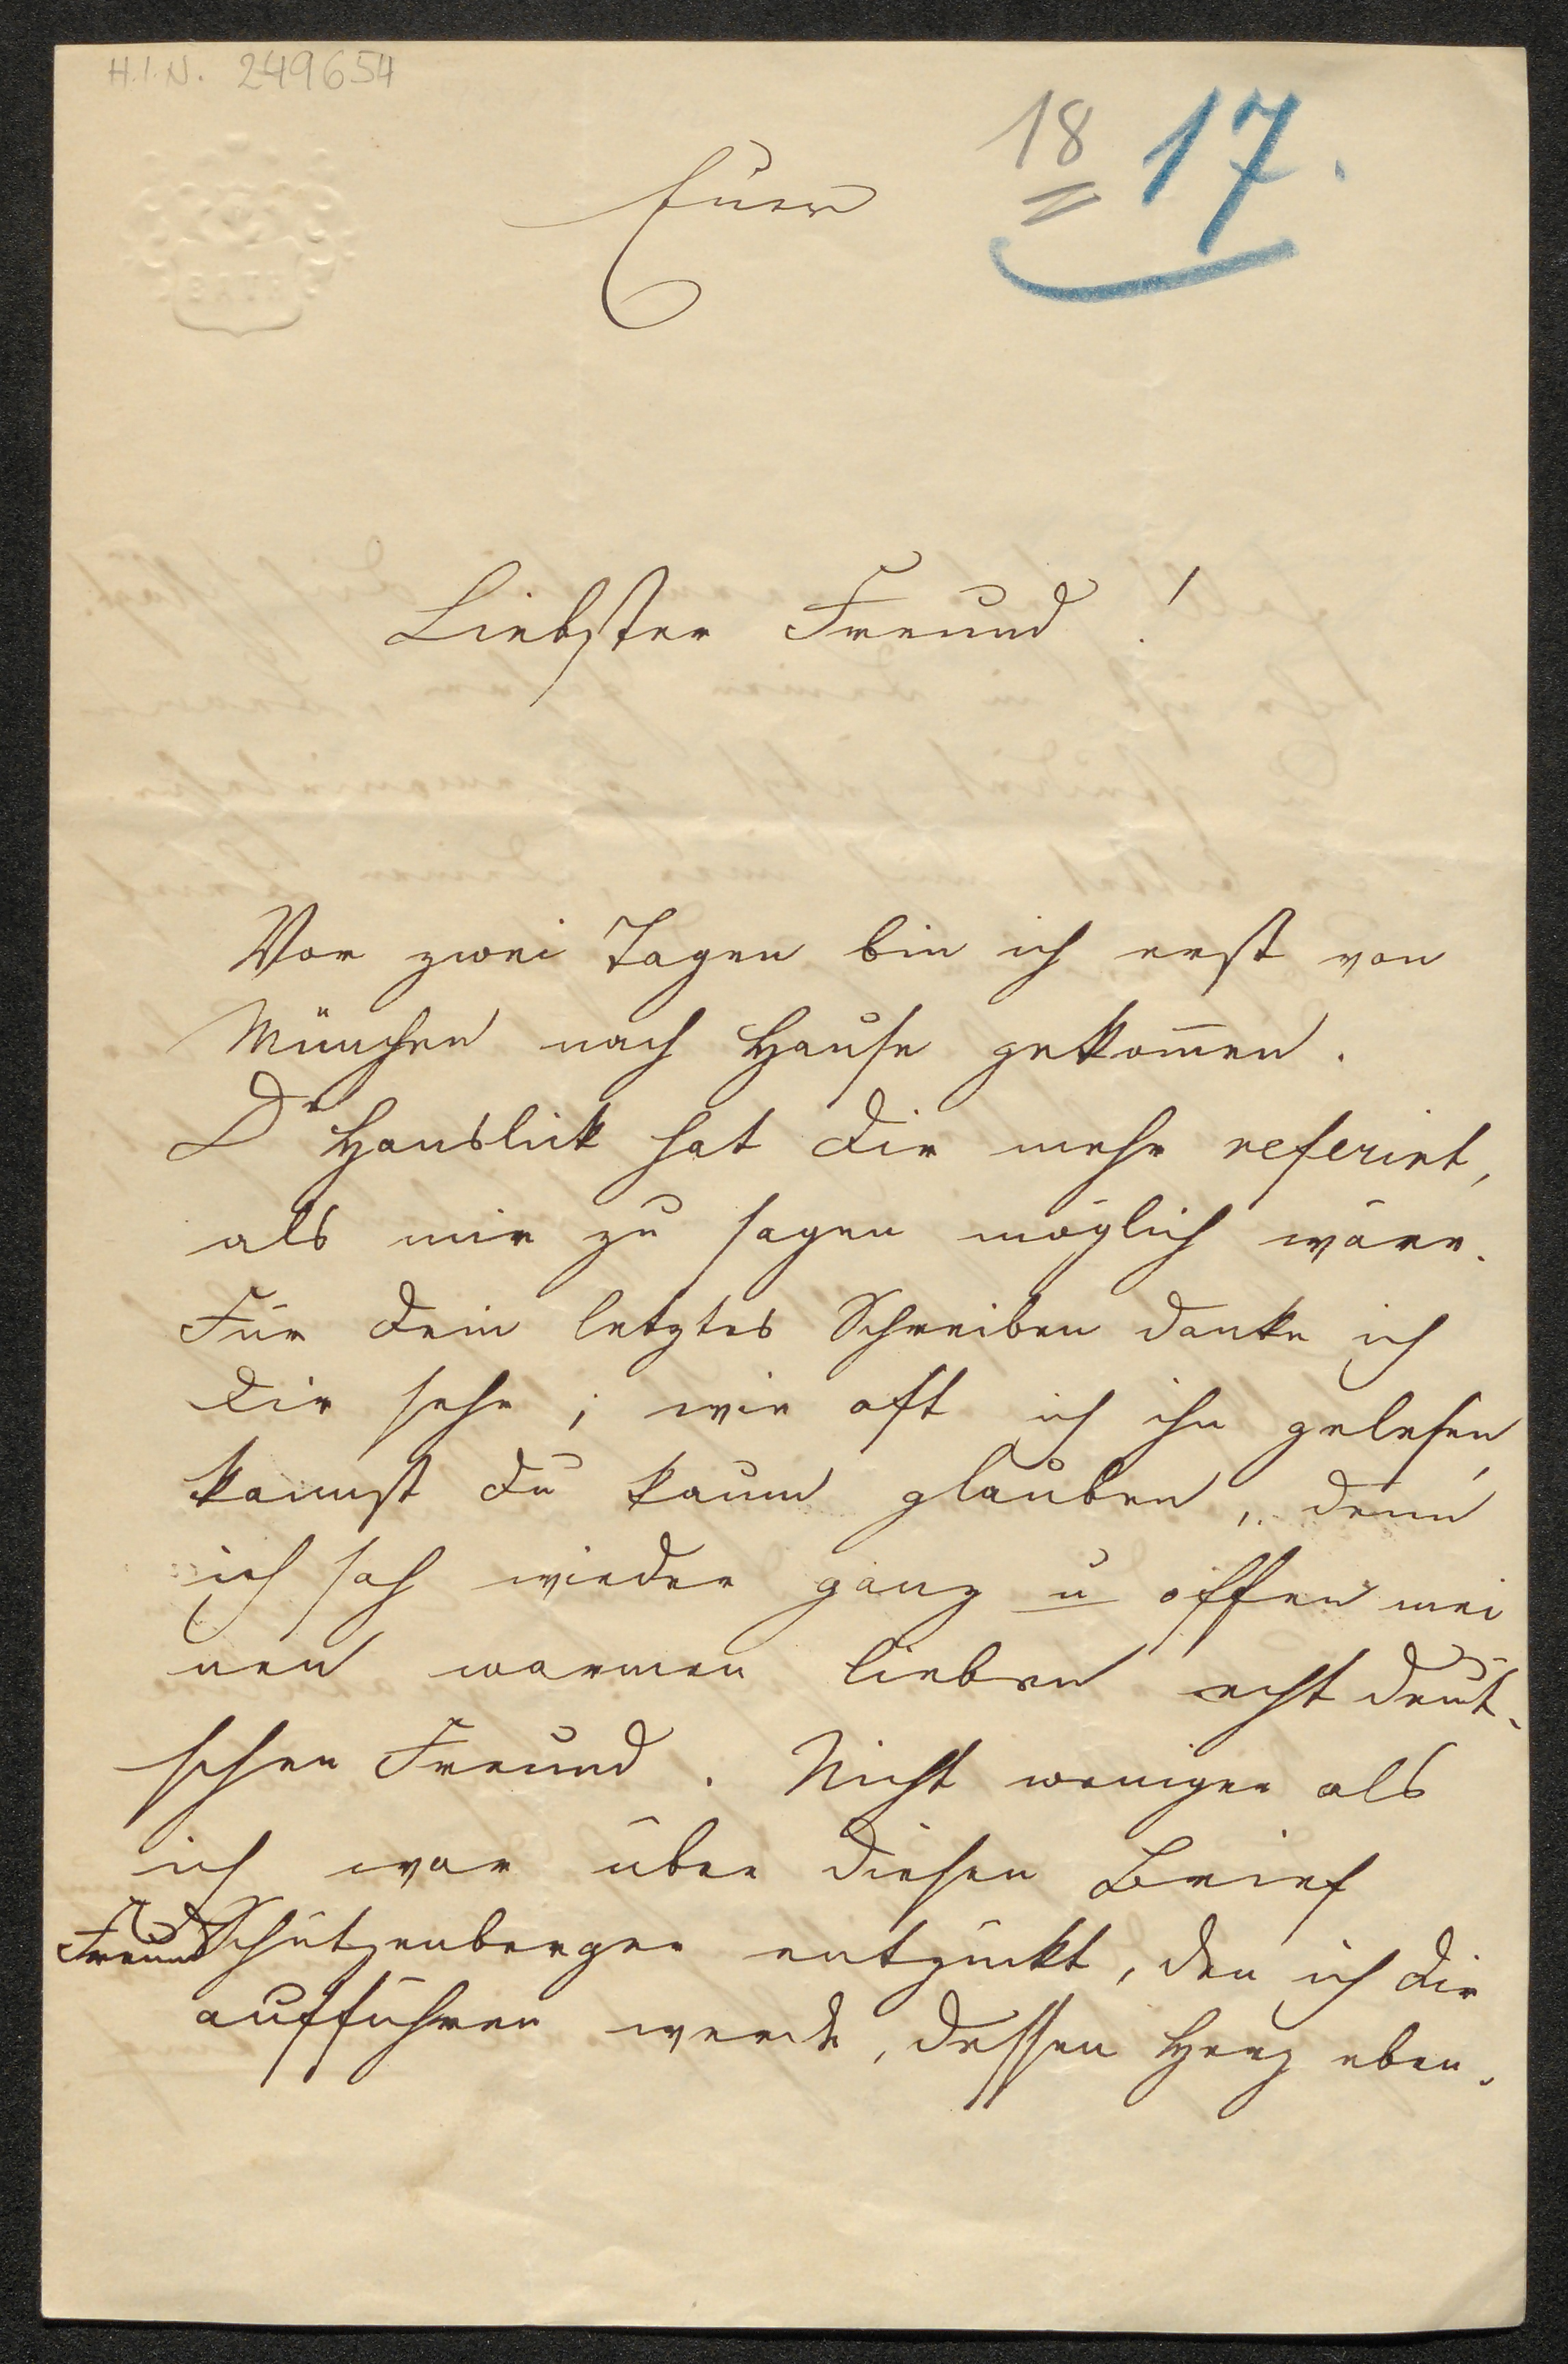 H.I.N. 249654
18 17.
Euer
BATH
Liebster Freund!
Vor zwei Tagen bin ich erst von
München nach Hause gekom̅en.
Dr Hanslick hat Dir mehr referirt,
als mir zu sagen möglich wäre.
Für Dein letztes Schreiben danke ich
Dir sehr; wie oft ich ihn gelesen,
kannst Du kaum glauben, denn
ich sah wieder ganz u offen mei
nen warmen lieben echt deut-
schen Freund. Nicht weniger als
ich war über diesen Brief
Freund Schützenberger entzückt, den ich Dir
aufführen werde, dessen Herz eben-